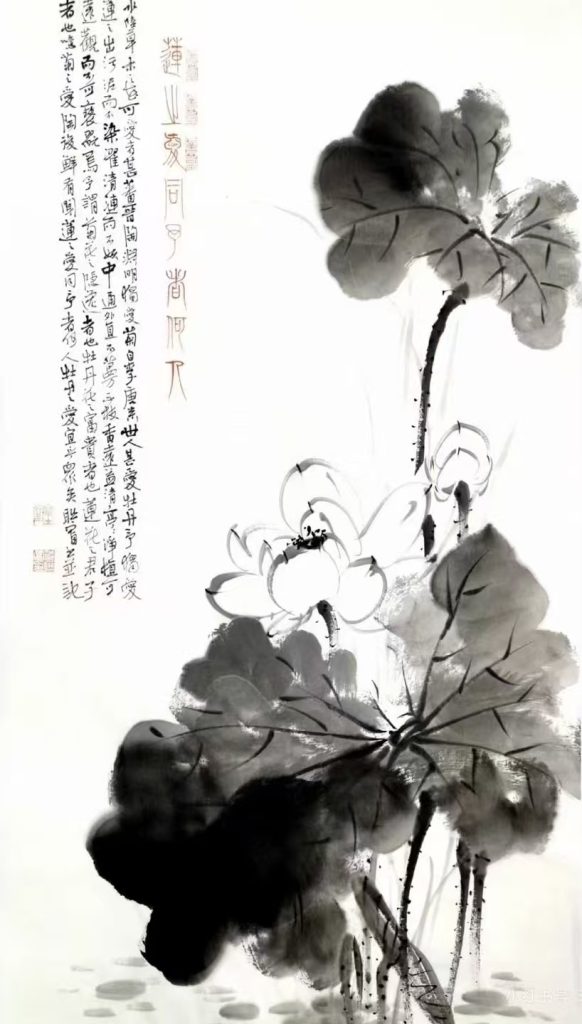 蓮之愛同予者何人
水陸草木之花可愛者甚蕃晉陶淵明獨愛菊自李唐來世人甚愛牡丹予獨愛
蓮之出污泥而不染濯清漣而不妖中通外直不蔓不枝香遠益清亭亭淨植可
遠觀而不可褻翫焉予謂菊花之隱逸者也牡丹花之富貴者也蓮花之君子
者也噫菊之愛陶後鮮有聞蓮之愛同予者何人牡丹之愛宜乎眾矣並記